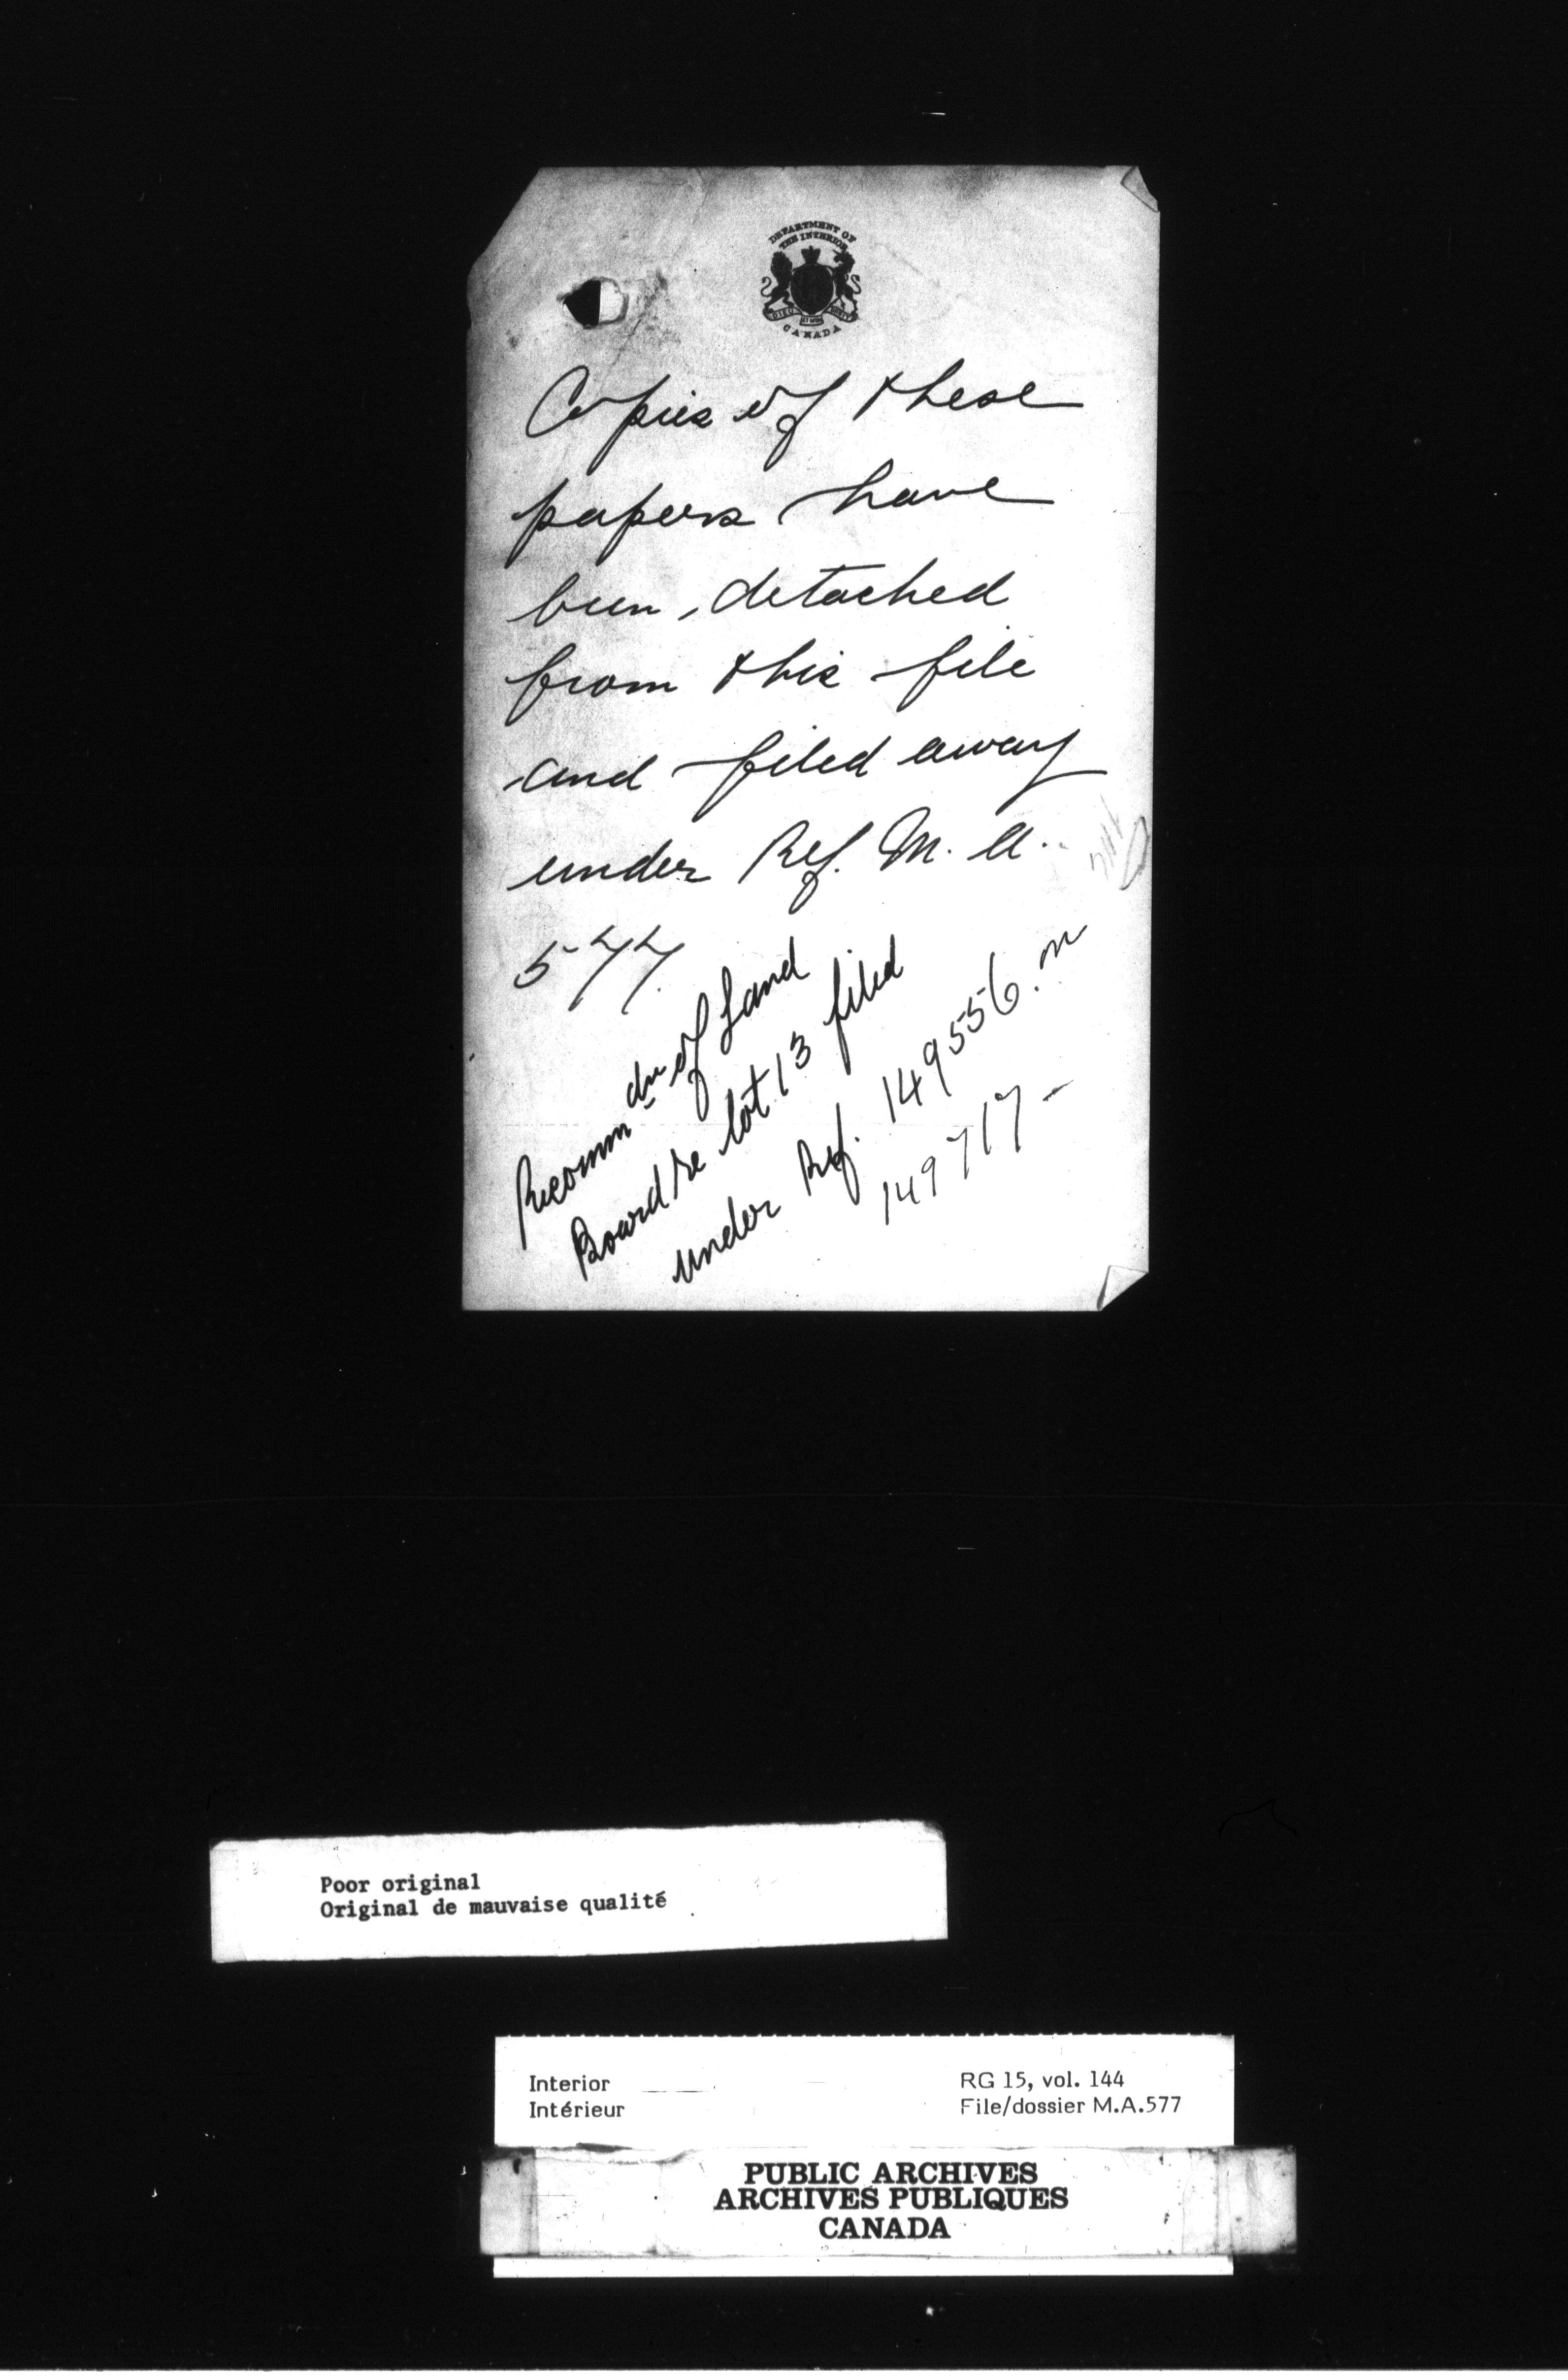 DEPARTMENT OF
THE INTERIOR
CANADA
Copies of these
papers have
been detached
from this file
and filed away
under Ref. M. A.
577.
Recomm dn of Land
Board re lot 13 filed
under Ref. 149556. M
149717 -
Poor original
Original de mauvaise qualité
Interior
Intérieur
RG 15, vol. 144
File/dossier M.A.577
PUBLIC ARCHIVES
ARCHIVES PUBLIQUES
CANADA